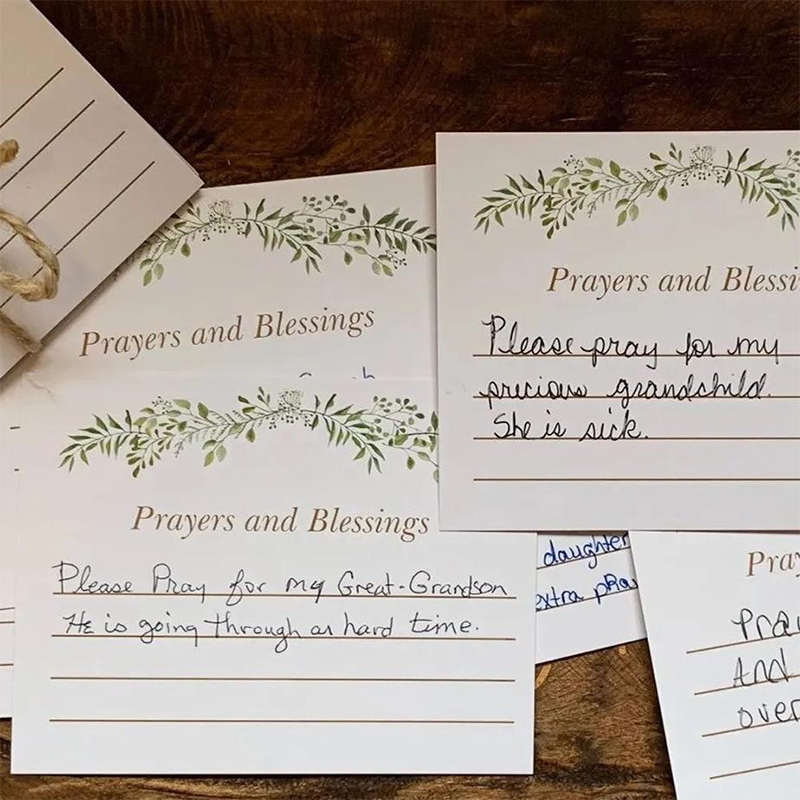 Prayers and Blessings
Prayers and
Please pray for my
precious grandchild.
She is sick.
Prayers and Blessings
Please Pray for my Great-Grandson
He is going through an hard time.
daughter
extra
And
over